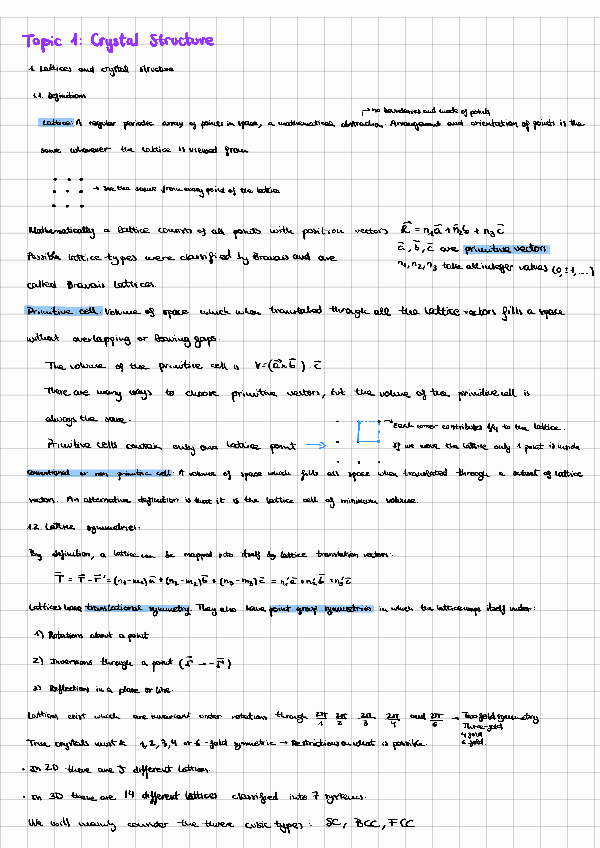 Topic 1: Crystal Structure
1. Lattices and crystal structure
1.1. Definitions
→ no boundaries and made of points
Lattice: A regular periodic array of points in space, a mathematical abstraction. Arrangement and orientation of points is the
same whenever the lattice is viewed from
→ see the same from every point of the lattice
Mathematically a lattice consists of all points with position vectors R = n₁a + n₂b + n₃c
a, b, c are primitive vectors
Possible lattice types were classified by Bravais and are
n₁, n₂, n₃ take all integer values (0, ±1, ...)
called Bravais lattices.
Primitive cell: Volume of space which when translated through all the lattice vectors fills a space
without overlapping or leaving gaps.
The volume of the primitive cell is V = (a × b) · c
There are many ways to choose primitive vectors, but the volume of the primitive cell is
always the same.
→ Each corner contributes 1/4 to the lattice.
Primitive cells contain only one lattice point →
If we move the lattice only 1 point is inside
Conventional or non primitive cell: A volume of space which fills all space when translated through a subset of lattice
vectors. An alternative definition is that it is the lattice cell of minimum volume.
1.2 Lattice symmetries.
By definition, a lattice can be mapped into itself by lattice translation vectors:
T = r - r' = (n₁-m₁)a + (n₂-m₂)b + (n₃-m₃)c = n₁'a + n₂'b + n₃'c
Lattices have translational symmetry. They also have point group symmetries in which the lattice maps itself under:
1) Rotations about a point
2) Inversions through a point (r → -r)
3) Reflections in a plane or line.
Lattices exist which are invariant under rotations through 2π/1 2π/2 2π/3 2π/4 and 2π/6 → Two fold symmetry
Three-fold
4 fold
6 fold
True crystals must be 1, 2, 3, 4 or 6-fold symmetric → Restrictions on what is possible.
· In 2D there are 5 different lattices.
· In 3D there are 14 different lattices classified into 7 systems.
We will mainly consider the three cubic types: SC, BCC, FCC